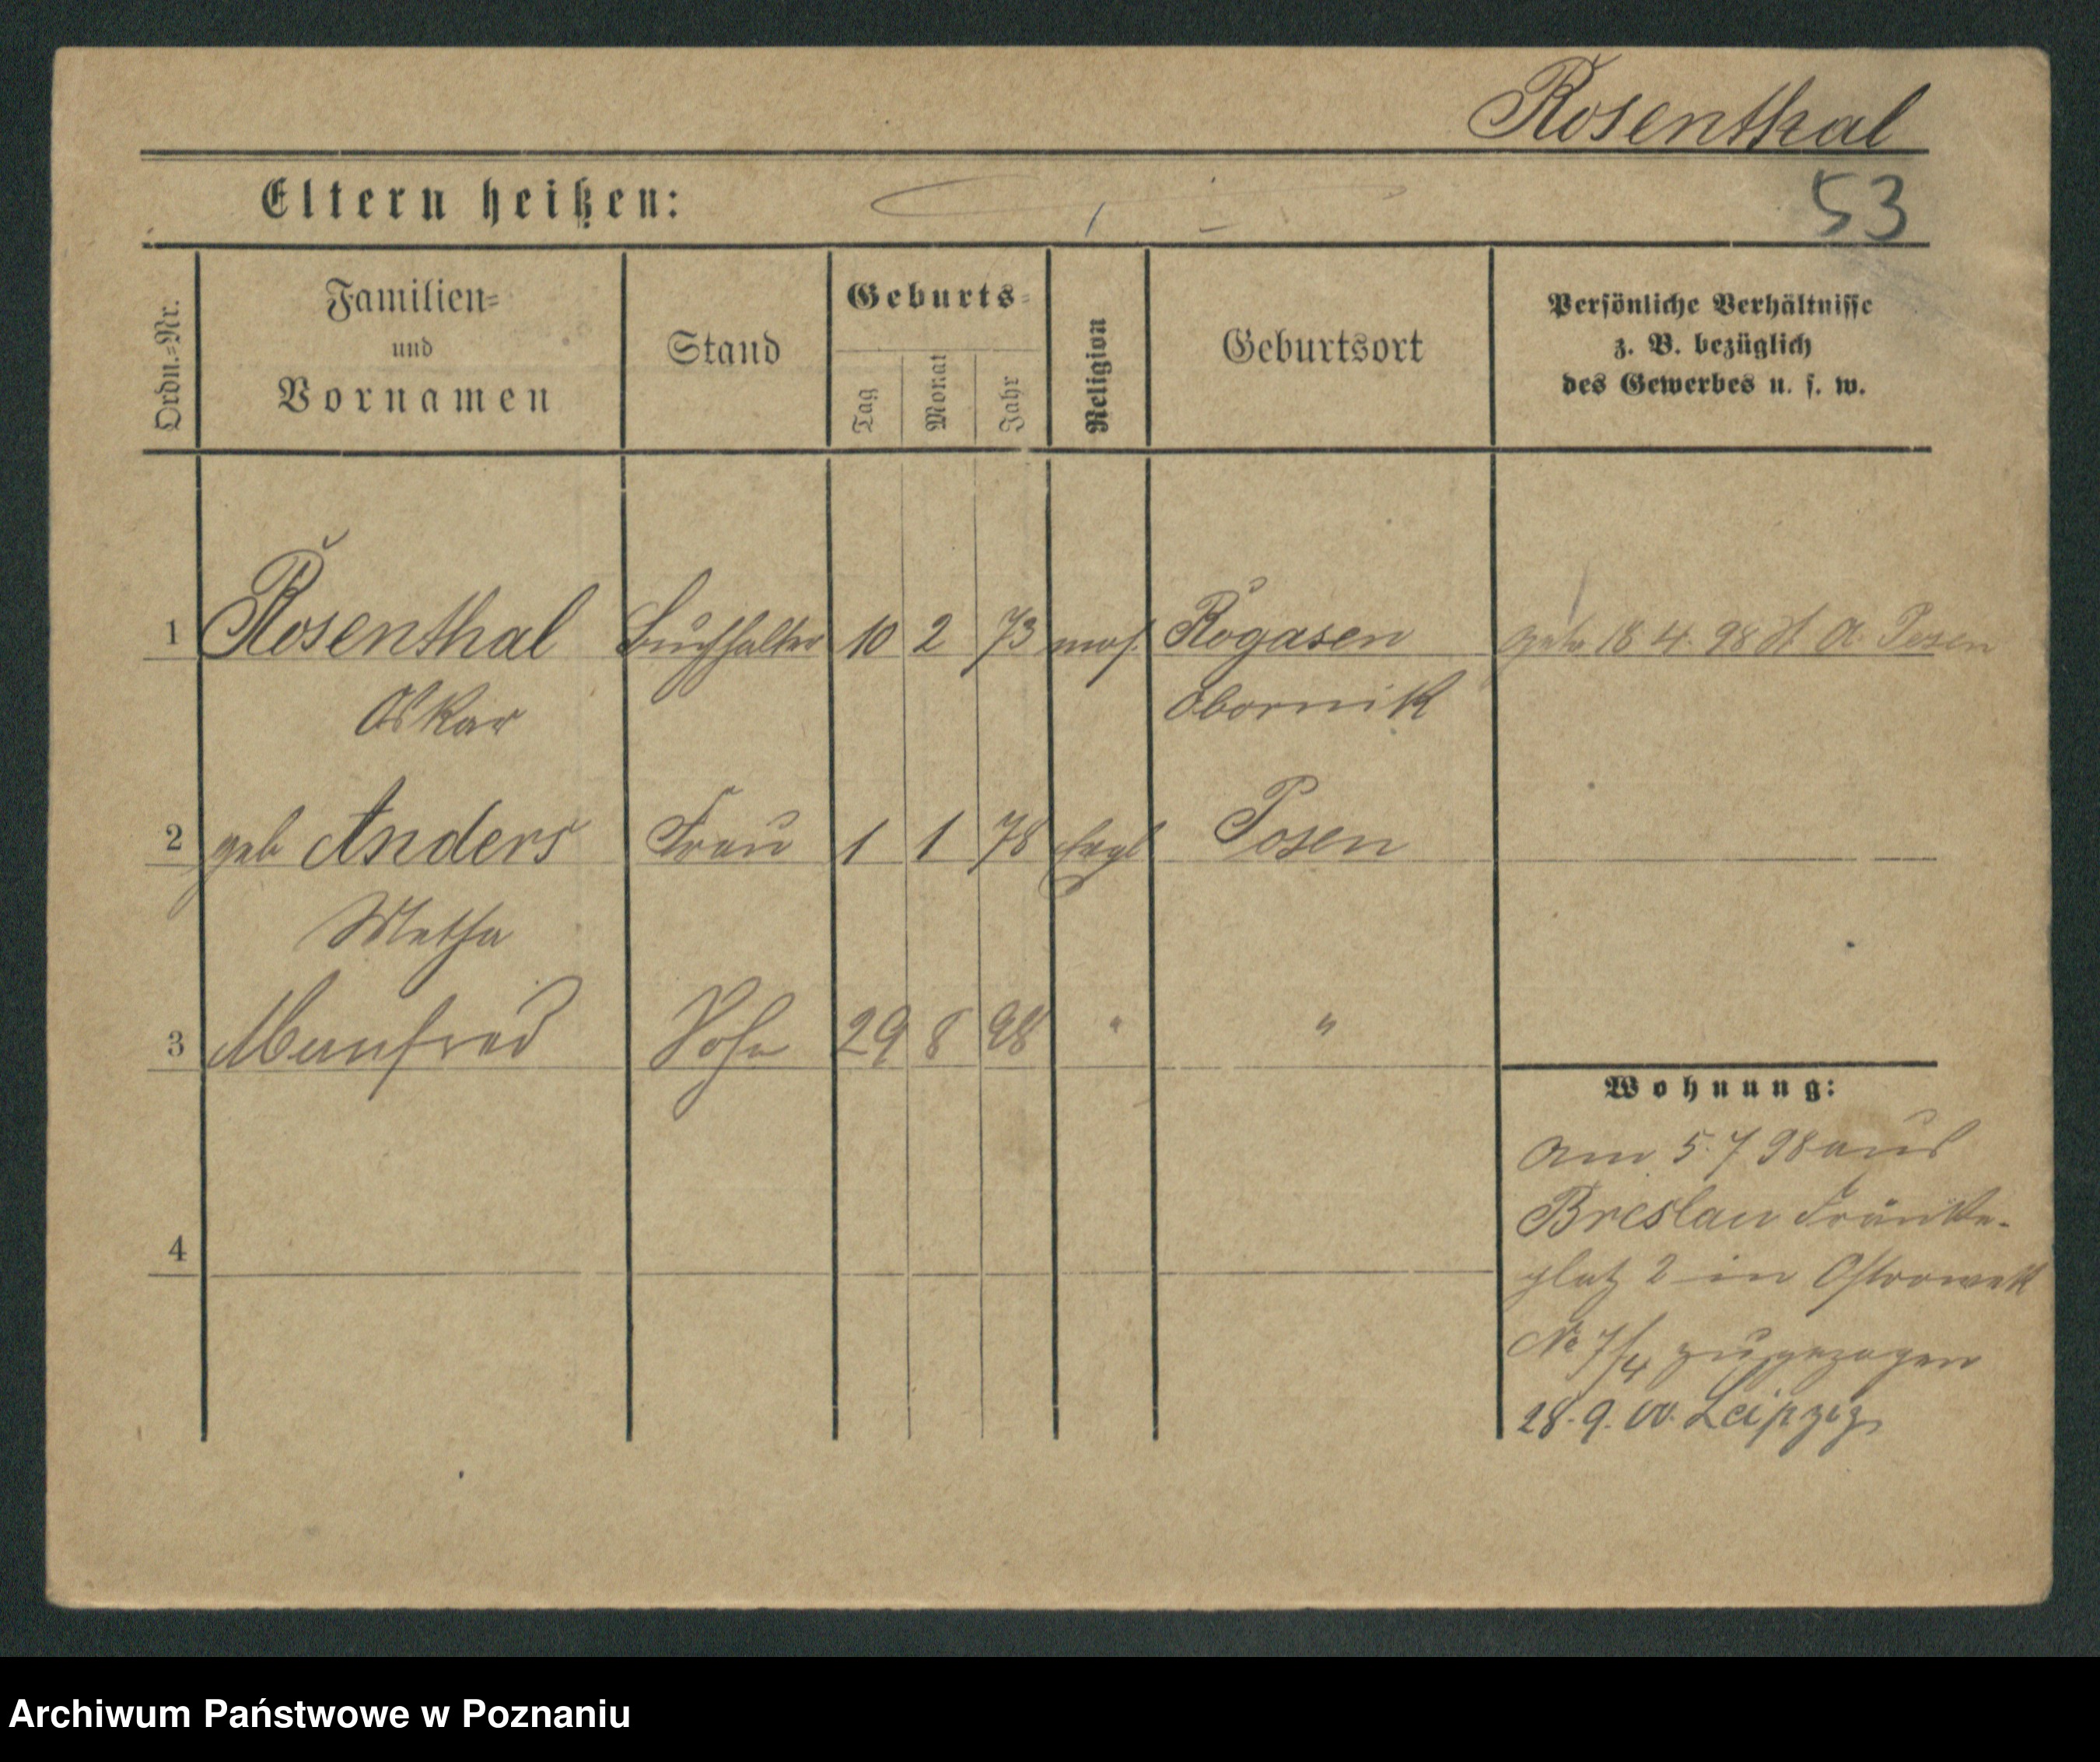 Rosenthal
Eltern heißen:
53
Ordn.-Nr.
Familien-
und
Vornamen
Stand
Geburts-
Tag
Monat
Jahr
Religion
Geburtsort
Persönliche Verhältnisse
z. B. bezüglich
des Gewerbes u. s. w.
1 Rosenthal Buchhalter 10 2 73 mos. Rogasen 18 4. 98 St. A. Posen
Oskar Obornik
2 geb Anders Frau 1 1 78 Posen
Metha
3 Manfred Sohn 29 8 98 " "
Wohnung:
am 5.7 98 aus
Breslau
4
platz 2 in Ostrowek
No 7/4 zugezogen
28. 9. 00. Leipzig
Archiwum Państwowe w Poznaniu